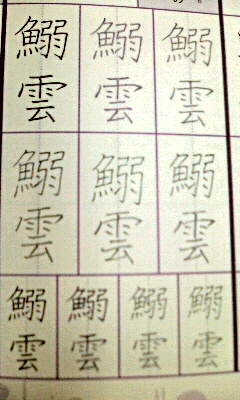 鰯雲 鰯雲 鰯雲
鰯雲 鰯雲 鰯雲
鰯雲 鰯雲 鰯雲 鰯雲